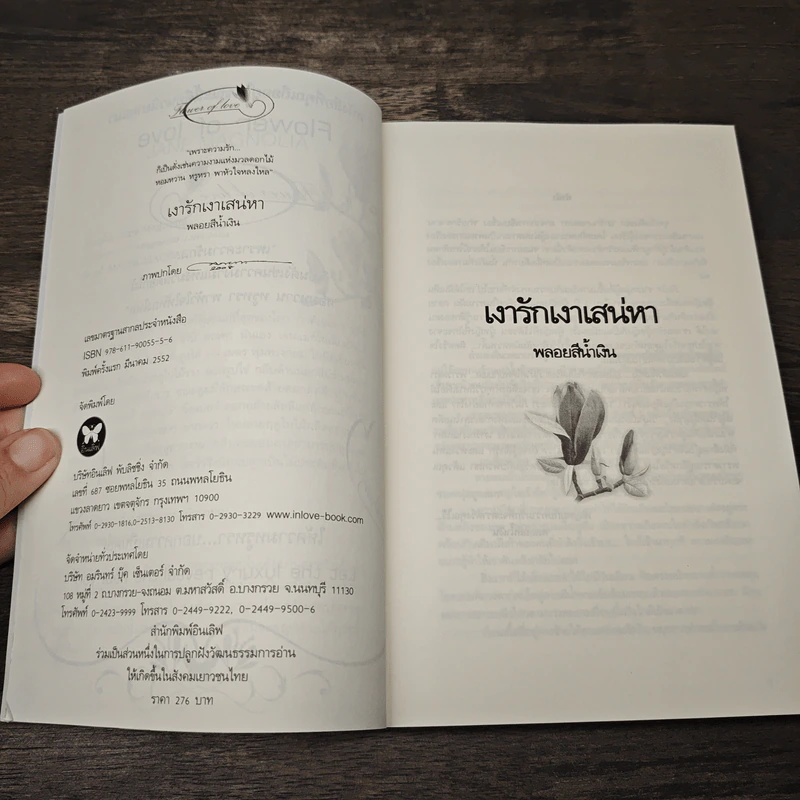 Flower of love
"เพราะความรัก...
ก็เป็นดั่งเช่นความงามแห่งมวลดอกไม้
หอมหวาน หรูหรา พาหัวใจหลงใหล"
เงารักเงาเสน่หา
พลอยสีน้ำเงิน
ภาพปกโดย
เลขมาตรฐานสากลประจำหนังสือ
ISBN 978-611-90055-5-6
พิมพ์ครั้งแรก มีนาคม 2552
จัดพิมพ์โดย
อินเลิฟ
บริษัทอินเลิฟ พับลิชชิ่ง จำกัด
เลขที่ 687 ซอยพหลโยธิน 35 ถนนพหลโยธิน
แขวงลาดยาว เขตจตุจักร กรุงเทพฯ 10900
โทรศัพท์ 0-2930-1816,0-2513-8130 โทรสาร 0-2930-3229 www.inlove-book.com
จัดจำหน่ายทั่วประเทศโดย
บริษัท อมรินทร์ บุ๊ค เซ็นเตอร์ จำกัด
108 หมู่ที่ 2 ถ.บางกรวย-จงถนอม ต.มหาสวัสดิ์ อ.บางกรวย จ.นนทบุรี 11130
โทรศัพท์ 0-2423-9999 โทรสาร 0-2449-9222, 0-2449-9500-6
สำนักพิมพ์อินเลิฟ
ร่วมเป็นส่วนหนึ่งในการปลูกฝังวัฒนธรรมการอ่าน
ให้เกิดขึ้นในสังคมเยาวชนไทย
ราคา 276 บาท
เงารักเงาเสน่หา
พลอยสีน้ำเงิน